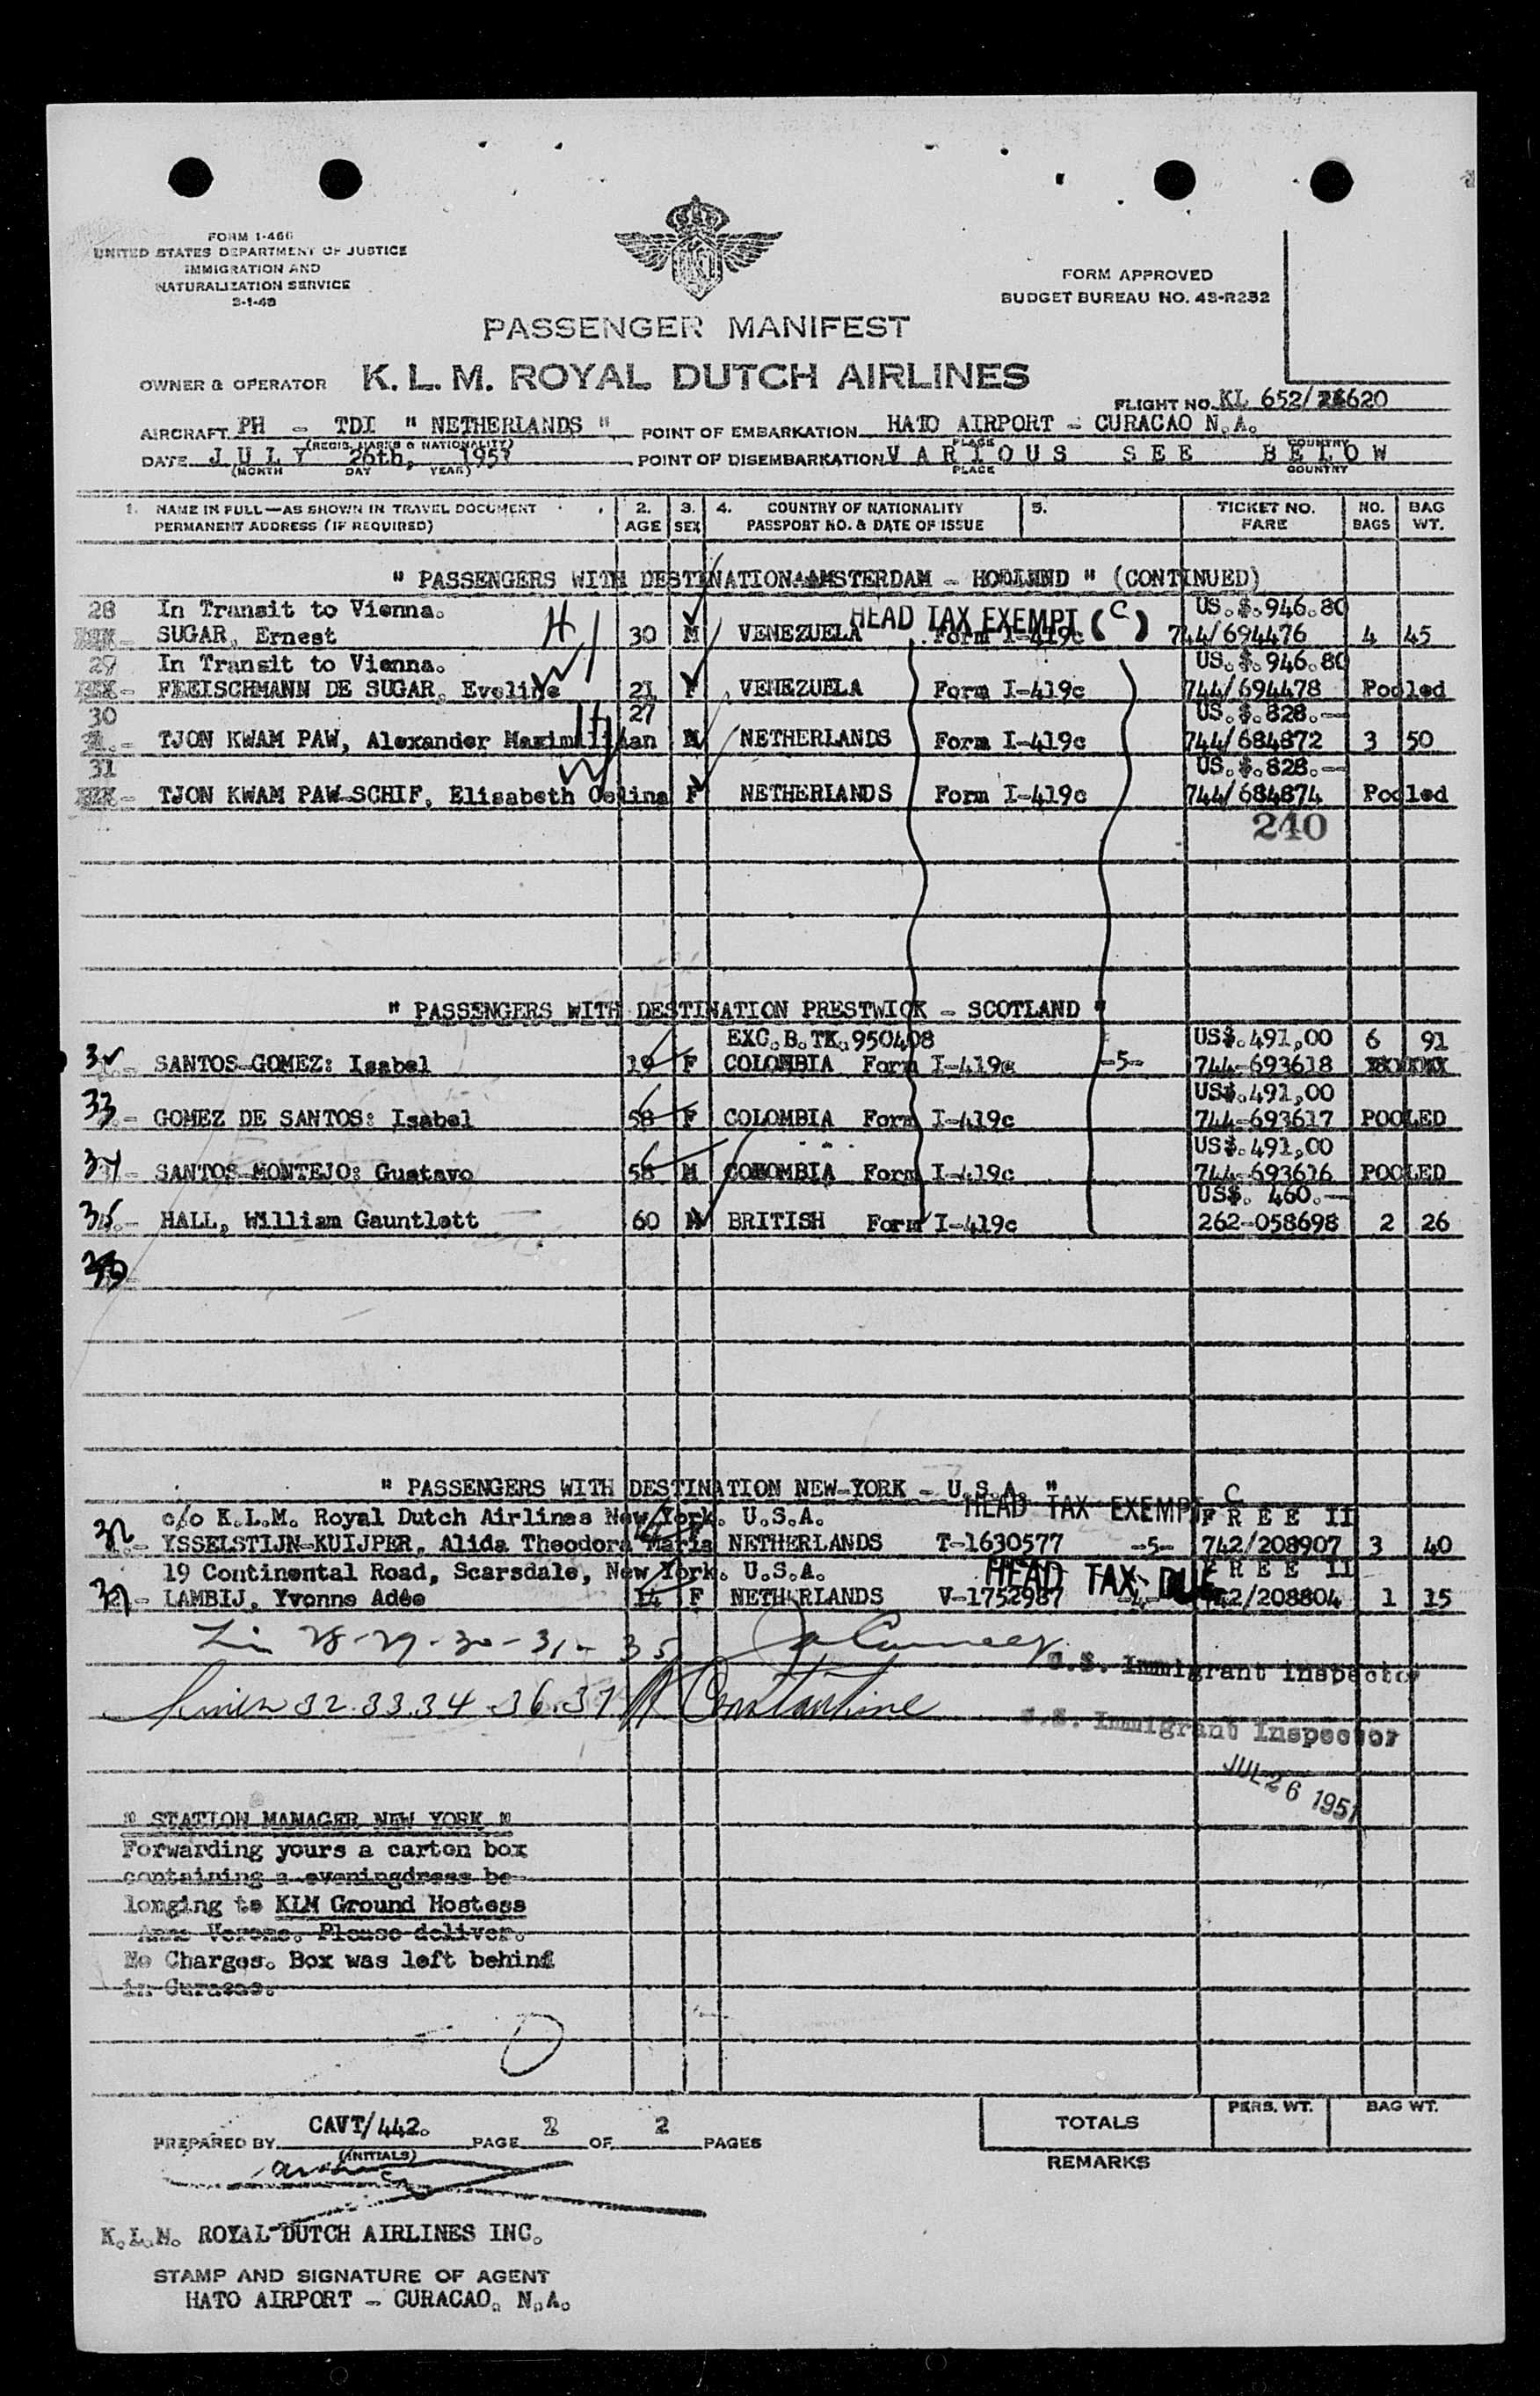 FORM I-466
UNITED STATES DEPARTMENT OF JUSTICE
IMMIGRATION AND
NATURALIZATION SERVICE
FORM APPROVED
BUDGET BUREAU NO. 43-R232
PASSENGER MANIFEST
OWNER & OPERATOR K. L. M. ROYAL DUTCH AIRLINES
FLIGHT NO. KL 652/ 620
AIRCRAFT PH - TDI " NETHERLANDS " POINT OF EMBARKATION HATO AIRPORT - CURACAO N.A.
(REGIS. MARKS & NATIONALITY) PLACE COUNTRY
DATE JULY 26th, 1951 POINT OF DISEMBARKATION VARIOUS SEE BELOW
(MONTH DAY YEAR) PLACE COUNTRY
1. NAME IN FULL—AS SHOWN IN TRAVEL DOCUMENT 2. 3. 4. COUNTRY OF NATIONALITY 5. TICKET NO. NO. BAG
PERMANENT ADDRESS (IF REQUIRED) AGE SEX PASSPORT NO. & DATE OF ISSUE FARE BAGS WT.
" PASSENGERS WITH DESTINATION AMSTERDAM - " (CONTINUED)
28 In Transit to Vienna. HEAD TAX EXEMPT (C) US.$.946.80
SUGAR, Ernest H 30 M VENEZUELA Form I-419c 744/694476 4 45
29 In Transit to Vienna. US.$.946.80
FLEISCHMANN DE SUGAR, Eveline W 21 F VENEZUELA Form I-419c 744/694478 Pooled
30 27 US.$.828.—
TJON KWAM PAW, Alexander Maximiliaan H M NETHERLANDS Form I-419c 744/684872 3 50
31 US.$.828.—
TJON KWAM PAW-SCHIF, Elisabeth Celina W F NETHERLANDS Form I-419c 744/684874 Pooled
240
" PASSENGERS WITH DESTINATION PRESTWICK - SCOTLAND "
EXC.B.TK.950408 US$.491,00 6 91
32 SANTOS-GOMEZ: Isabel 19 F COLOMBIA Form I-419c -5- 744-693618
US$.491,00
33 GOMEZ DE SANTOS: Isabel 58 F COLOMBIA Form I-419c 744-693617 POOLED
US$.491,00
34 SANTOS-MONTEJO: Gustavo 58 M COLOMBIA Form I-419c 744-693616 POOLED
US$. 460.—
35 HALL, William Gauntlett 60 M BRITISH Form I-419c 262-058698 2 26
" PASSENGERS WITH DESTINATION NEW-YORK - U.S.A. "
c/o K.L.M. Royal Dutch Airlines New York. U.S.A. HEAD TAX EXEMPT C FREE II
YSSELSTIJN-KUIJPER, Alida Theodora Maria NETHERLANDS T-1630577 -5- 742/208907 3 40
19 Continental Road, Scarsdale, New York. U.S.A. HEAD TAX DUE FREE II
LAMBIJ, Yvonne Adèe 14 F NETHERLANDS V-1752987 -4- 742/208804 1 15
28-29-30-31-35
U.S. Immigrant Inspector
Lines 32.33.34-36.37 Constantine
U.S. Immigrant Inspector
JUL 26 1951
" STATION MANAGER NEW YORK "
Forwarding yours a carton box
containing a eveningdress be-
longing to KLM Ground Hostess
Please deliver.
No Charges. Box was left behind
in Curacao.
PREPARED BY CAVT/442. PAGE 2 OF 2 PAGES
(INITIALS)
TOTALS PERS. WT. BAG WT.
REMARKS
K.L.M. ROYAL DUTCH AIRLINES INC.
STAMP AND SIGNATURE OF AGENT
HATO AIRPORT - CURACAO. N.A.